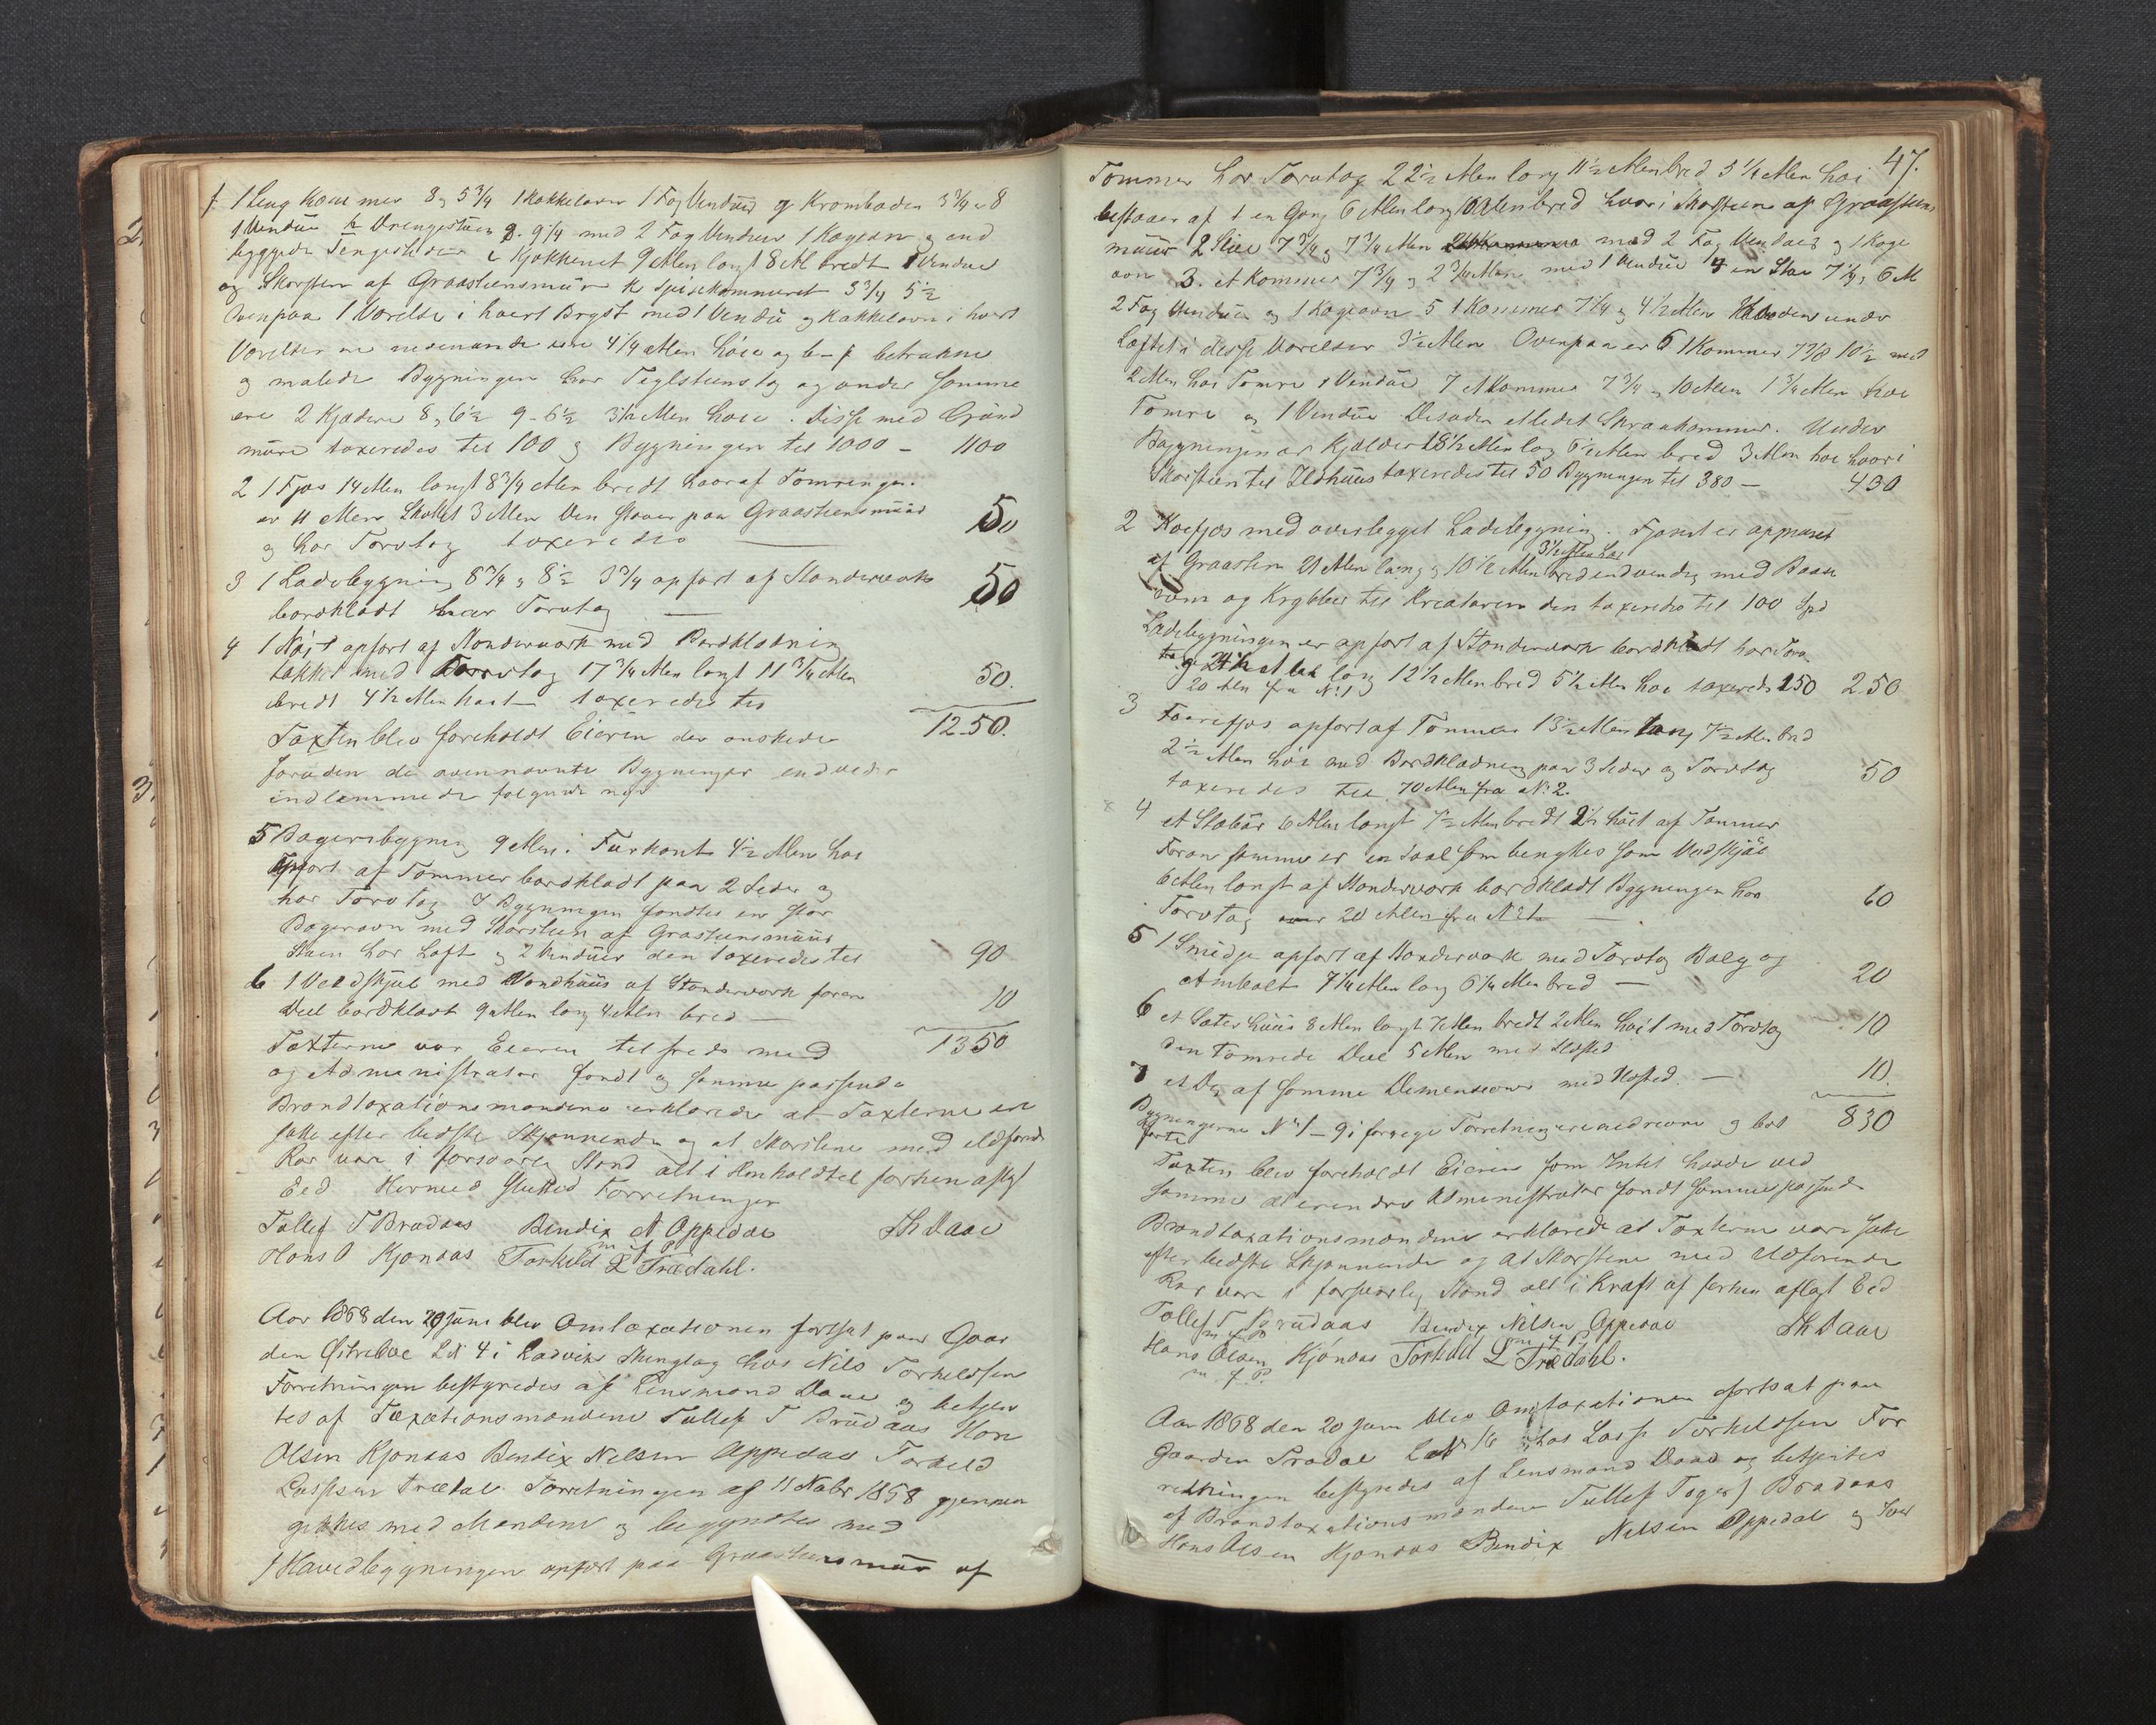 f 1 Seng Kammer 8 og 5 3/4 1 Kakkelovn 1 Fag Vendue g Krambaden 3 3/4 8
1 Vendue h Drengestuen 9. 9 1/4 med 2 Fag Vendue 1 Kogeovn og ind
byggede Sengesteder i Kjøkkenet 9 Alen langt 8 Al bredt 1 Vendue
og Skorsten af Graastensmuur k Spisekammeret 3 3/4 5 1/2
Ovenpaa 1 Værelse i hvert Brøst med 1 Vendu og Kakkelovn i hvert
Værelser ere nedenunder 4 1/4 Alen høie og b-f betrukne
og malede Bygningen har Teglsteenstag og under samme
ere 2 Kjædere 8 og 6 1/2 9 - 6 1/2 3 1/2 Alen høie. Disse med Grund
mure taxeredes til 100 og Bygningen til 1000 - 1100
2 1 Fjøs 14 Alen langt 8 3/4 Alen bredt hvoraf Tømringen
er 11 Alen Skottet 3 Alen Den staaer paa Graasteensmuur
og har Torvtag taxeredes 50
3 1 Ladebygning 8 3/4 og 8 1/2 3 3/4 opført af Standerværk
bordklædt har Torvtag 50
4 1 Nøst opført af Standerværk med Bordklædning
tækket med Torvtag 17 3/4 Alen langt 11 3/4 Alen
bredt 4 1/2 Alen høit taxeredes til 50.
Taxten blev foreholdt Eieren der ønskede 1250.
foruden de ovennævnte Bygninger endvidere
indlemmede følgende nye
5 Bagersbygning 9 Alen i Fiirkant 4 1/2 Alen høi
Opført af Tømmer bordklædt paa 2 Sider og
har Torvtag I Bygningen fandtes en stor
Bagerovn med Skorsteen af Grasteensmuur
Stuen har Loft og 2 Venduer den taxeredes til 90
6 1 Vedskjul med Vandhuus af Standerværk foran
Deel bordklædt 9 Alen lang 4 Alen bred 10
Taxterne var Eieren tilfreds med 1350
og Administrator fandt og samme passende
Brandtaxationsmændene erklærede at Taxterne ere
satte efter bedste Skjønnende og at Skorstene med ildførende
Rør var i forsvarlig Stand alt i Henhold til forhen aflagt
Eed Hermed sluttet Forretningen
Tollef T Brudaas Bendix N Oppedal Th Daae
Hans O Kjøndas Torkild L Trædahl.
m f P
Aar 1868 den 20 Juni blev Omtaxationen fortsat paa Gaar
den Østrebøe L N 4 i Ladviks Thinglag hos Nils Torkeldsen
Forretningen bestyredes af Lensmand Daae og betjen
tes af Taxationsmændene Tollef T Brudaas Hans
Olsen Kjøndas Bendix Nilsen Oppedal Torkeld
Lassesen Trædal. Forretningen af 11 Nobr 1858 gjennem
gikkes med Mændene og begyndtes med
1 Havedbygningen opført paa Graasteensmuur af
47.
Tømmer har Torvtag 22 1/2 Alen lang 11 1/2 Alen bred 5 1/4 Alen høi
bestaaer af 1 en Gang 6 Alen lang 6 Alen bred hvori Skorsteen af Graasteens
muur 2 Stue 7 3/4 og 7 3/4 Alen med 2 Fag Venduer og 1 Koge
ovn 3. et Kammer 7 3/4 og 2 3/4 Alen med 1 Vendue 4 en Stue 7 1/4 og 6 Al
2 Fag Venduer og 1 Kogeovn 5 1 Kammer 7 1/4 og 4 1/2 Alen Høiden under
Loftet i disse Værelser 3 1/2 Alen Ovenpaa er 6 1 Kammer 7 7/8 10 1/2 med
2 Alen høi Tømre 1 Vendue 7 et Kammer 7 3/4 og 10 Alen 1 3/4 Alen høi
Tømre og 1 Vendue Desuden et lidet Skraakammer. Under
Bygningen er Kjælder 18 1/2 Alen lang 6 1/2 Alen bred 3 Alen høi hvori
Skorsteen til Ildhuus taxeredes til 50 Bygningen til 380 - 430
2 Koefjøs med overbygget Ladebygning. Fjøset er opmuret
af Graasteen 21 Alen lang og 10 1/2 Alen bred indvendig 3 1/2 Alen høi med Baase
rum og Krybber til Kreaturene den taxeredes til 100 Spd
Ladebygningen er opført af Standerværk bordklædt har Torv
tag 24 1/2 Alen lang 12 1/2 Alen bred 5 1/2 Alen høi taxeredes 150 250
20 Alen fra No 1
3 Faarefjøs opført af Tømmer 13 1/2 Alen lang 7 1/2 Alen bred
2 1/2 Alen høi med Bordklædning paa 3 Sider og Torvtag
taxeredes til 70 Alen fra No 2. 50
4 et Stabur 6 Alen langt 7 1/2 Alen bredt 2 1/2 høit af Tømmer
Foran samme er en Sval som benyttes som Vedskjul
6 Alen langt af Standerværk bordklædt Bygningen har
Torvtag 20 Alen fra No 1 60
5 1 Smidje opført af Standerværk med Torvtag Bælg og
Ambolt 7 1/4 Alen lang 6 1/4 Alen bred 20
6 et Sæterhuus 8 Alen langt 7 Alen bredt 2 Alen høit med Torvtag
den tømrede Deel 5 Alen med Ildsted 10
7 et Do af samme Demensioner med Ildsted. 10.
Bygningerne No 1 - 9 i forrige Forretning ere nedrevne og bort 830
førte
Taxten blev foreholdt Eieren som Intet havde ved
samme at erindre Administrator fandt samme passende
Brandtaxationsmændene erklærede at Taxterne vare satte
efter bedste Skjønnende og at Skorstene med ildførende
Rør vare i forsvarlig Stand alt i Kraft af forhen aflagt Eed
Tollef T Brudaas Bendix Nilsen Oppedal Th Daae
m f P
Hans Olsen Kjøndas Torkild L Trædahl.
m f P.
Aar 1868 den 20 Juni blev Omtaxationen fortsat paa
Gaarden Trædal L No 16 hos Lasse Torkeldsen For
retningen bestyredes af Lensmand Daae og betjentes
af Brandtaxationsmændene Tollef Togers Brudaas
Hans Olsen Kjøndas Bendix Nilsen Oppedal og Iver